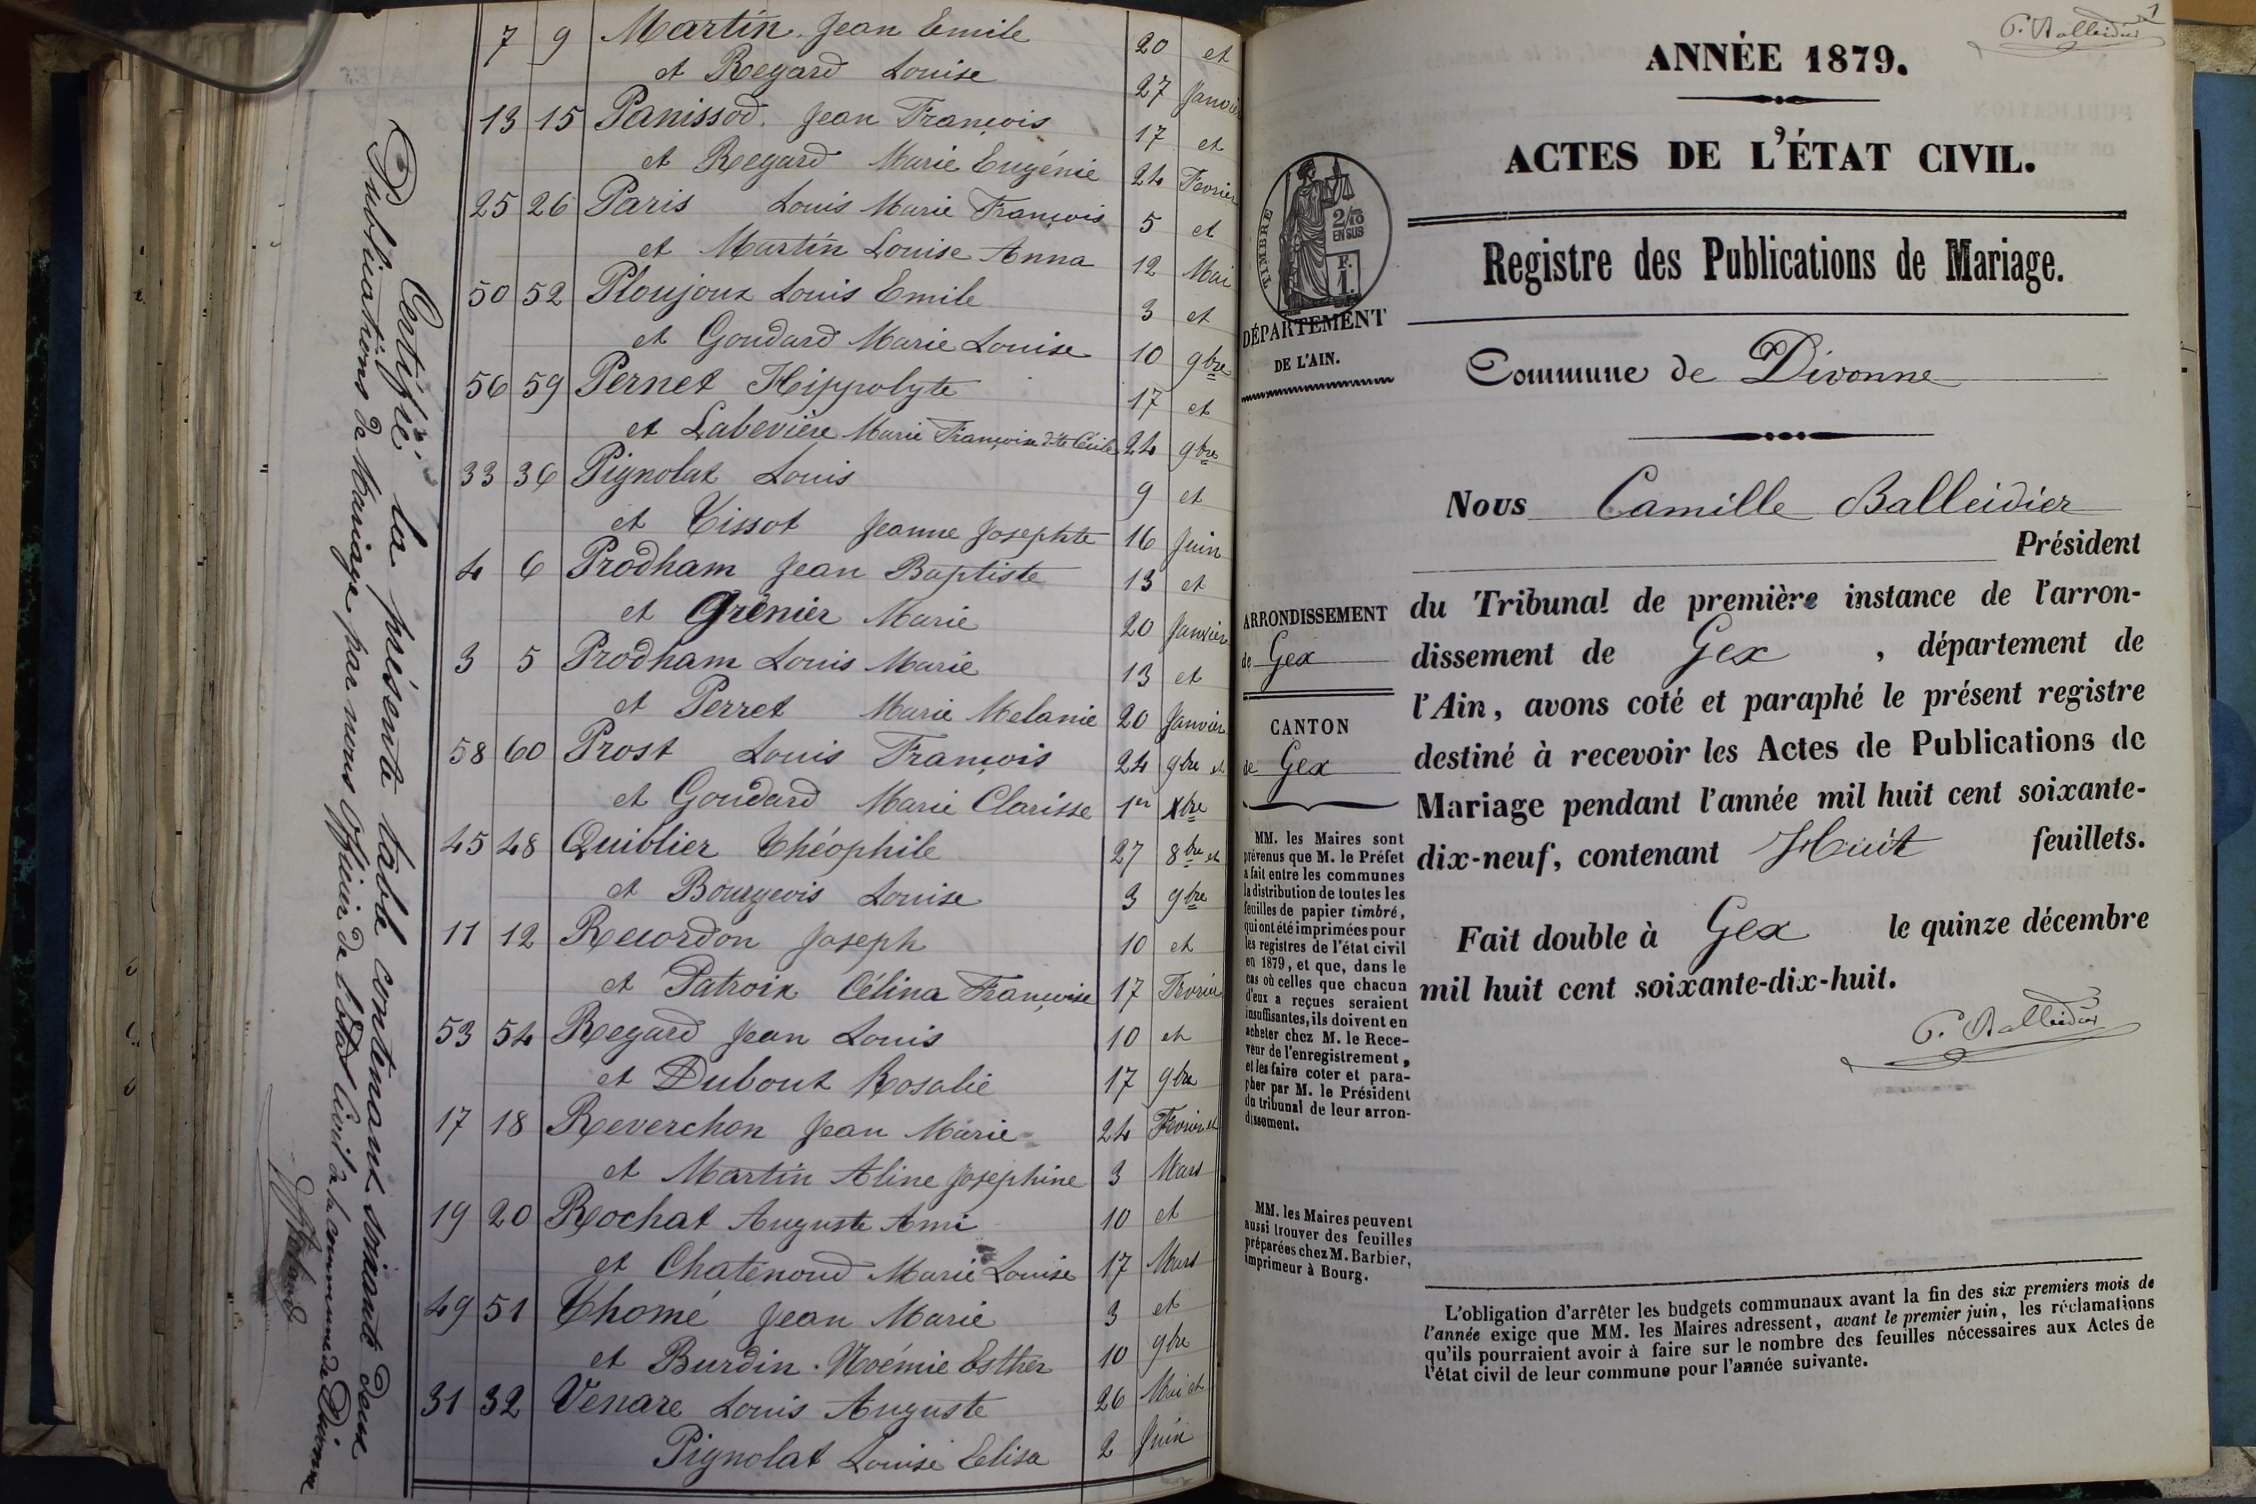 7 9 Martin Jean Emile 20 et
et Regard Louise 27 Janvier
13 15 Panissod Jean François 17 et
et Regard Marie Eugénie 24 Fevrier
25 26 Paris Louis Marie François 5 et
et Martin Louise Anna 12 Mai
50 52 Ploujoux Louis Emile 3 et
et Goudard Marie Louise 10 9bre
56 59 Pernet Hippolyte 17 et
et Labevière Marie Françoise dte Cécile 24 9bre
33 36 Pignolat Louis 9 et
et Tissot Jeanne Josephte 16 Juin
4 6 Prodham Jean Baptiste 13 et
et Grenier Marie 20 Janvier
3 5 Prodham Louis Marie 13 et
et Perret Marie Melanie 20 Janvier
58 60 Prost Louis François 24 9bre et
et Goudard Marie Clarisse 1er Xbre
45 48 Quiblier Théophile 27 8bre et
et Bourgeois Louise 3 9bre
11 12 Recordon Joseph 10 et
et Patroix Célina Françoise 17 Fevrier
53 54 Regard Jean Louis 10 et
et Dubout Rosalie 17 9bre
17 18 Reverchon Jean Marie 24 Fevrier et
et Martin Aline Josephine 3 Mars
19 20 Rochat Auguste Ami 10 et
et Chatenoud Marie Louise 17 Mars
49 51 Thomé Jean Marie 3 et
et Burdin Noémie Esther 10 9bre
31 32 Venare Louis Auguste 26 Mai et
Pignolat Louise Elisa 2 Juin
Certifié la présente table contenant soixante deux
Publications de mariage par nous officier de l'état civil de la commune de Divonne
1
C. Balleidier
ANNÉE 1879.
ACTES DE L'ÉTAT CIVIL.
Registre des Publications de Mariage.
TIMBRE
2/10
EN SUS
F.
1.
DÉPARTEMENT
DE L'AIN.
Commune de Divonne
Nous Camille Balleidier
Président
du Tribunal de première instance de l'arron-
dissement de Gex , département de
l'Ain, avons coté et paraphé le présent registre
destiné à recevoir les Actes de Publications de
Mariage pendant l'année mil huit cent soixante-
dix-neuf, contenant Huit feuillets.
Fait double à Gex le quinze décembre
mil huit cent soixante-dix-huit.
C. Balleidier
ARRONDISSEMENT
de Gex
CANTON
de Gex
MM. les Maires sont
prévenus que M. le Préfet
a fait entre les communes
la distribution de toutes les
feuilles de papier timbré,
qui ont été imprimées pour
les registres de l'état civil
en 1879, et que, dans le
cas où celles que chacun
d'eux a reçues seraient
insuffisantes, ils doivent en
acheter chez M. le Rece-
veur de l'enregistrement,
et les faire coter et para-
pher par M. le Président
du tribunal de leur arron-
dissement.
MM. les Maires peuvent
aussi trouver des feuilles
préparées chez M. Barbier,
imprimeur à Bourg.
L'obligation d'arrêter les budgets communaux avant la fin des six premiers mois de
l'année exige que MM. les Maires adressent, avant le premier juin, les réclamations
qu'ils pourraient avoir à faire sur le nombre des feuilles nécessaires aux Actes de
l'état civil de leur commune pour l'année suivante.